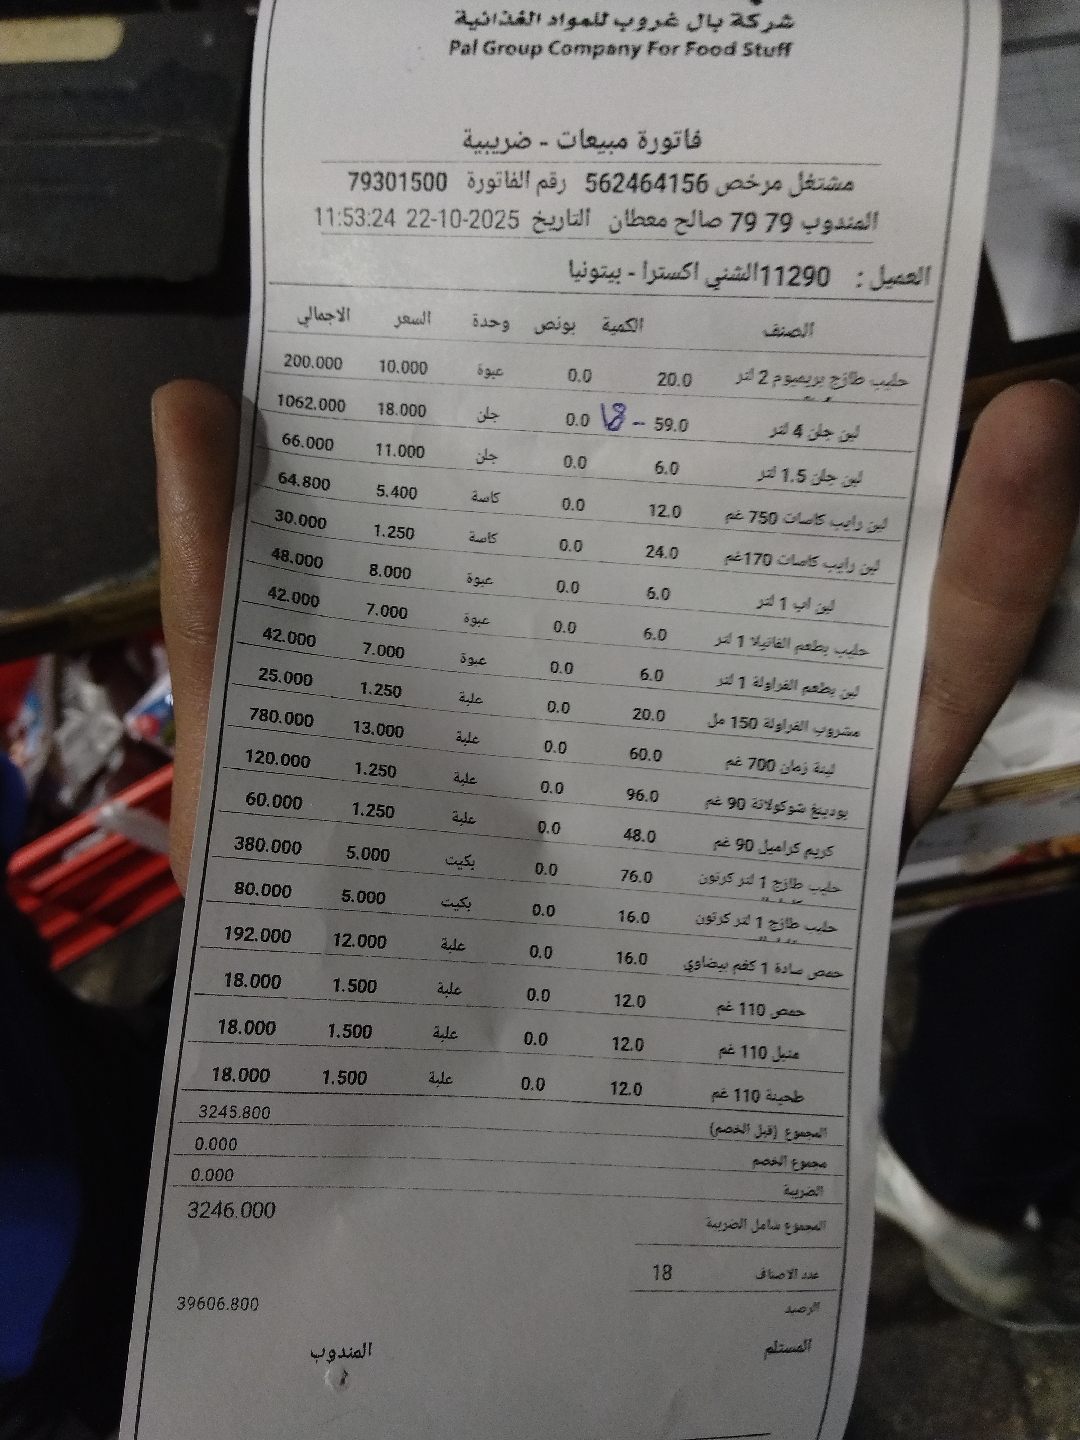 شركة بال غروب للمواد الغذائية
Pal Group Company For Food Stuff
فاتورة مبيعات - ضريبية
مشتغل مرخص 562464156 رقم الفاتورة 79301500
المندوب 79 79 صالح معطان التاريخ 22-10-2025 11:53:24
العميل : 11290الشني اكسترا - بيتونيا
الصنف الكمية بونص وحدة السعر الاجمالي
حليب طازج بريميوم 2 لتر 20.0 0.0 عبوة 10.000 200.000
لبن جلن 4 لتر 59.0 - 18 0.0 جلن 18.000 1062.000
لبن جلن 1.5 لتر 6.0 0.0 جلن 11.000 66.000
لبن رايب كاسات 750 غم 12.0 0.0 كاسة 5.400 64.800
لبن رايب كاسات 170غم 24.0 0.0 كاسة 1.250 30.000
لبن اب 1 لتر 6.0 0.0 عبوة 8.000 48.000
حليب بطعم الفانيلا 1 لتر 6.0 0.0 عبوة 7.000 42.000
لبن بطعم الفراولة 1 لتر 6.0 0.0 عبوة 7.000 42.000
مشروب الفراولة 150 مل 20.0 0.0 علبة 1.250 25.000
لبنة زمان 700 غم 60.0 0.0 علبة 13.000 780.000
بودينغ شوكولاتة 90 غم 96.0 0.0 علبة 1.250 120.000
كريم كراميل 90 غم 48.0 0.0 علبة 1.250 60.000
حليب طازج 1 لتر كرتون 76.0 0.0 بكيت 5.000 380.000
حليب طازج 1 لتر كرتون 16.0 0.0 بكيت 5.000 80.000
حمص سادة 1 كغم بيضاوي 16.0 0.0 علبة 12.000 192.000
حمص 110 غم 12.0 0.0 علبة 1.500 18.000
متبل 110 غم 12.0 0.0 علبة 1.500 18.000
طحينة 110 غم 12.0 0.0 علبة 1.500 18.000
المجموع (قبل الخصم) 3245.800
مجموع الخصم 0.000
الضريبة 0.000
المجموع شامل الضريبة 3246.000
عدد الاصناف 18
الرصيد 39606.800
المستلم المندوب